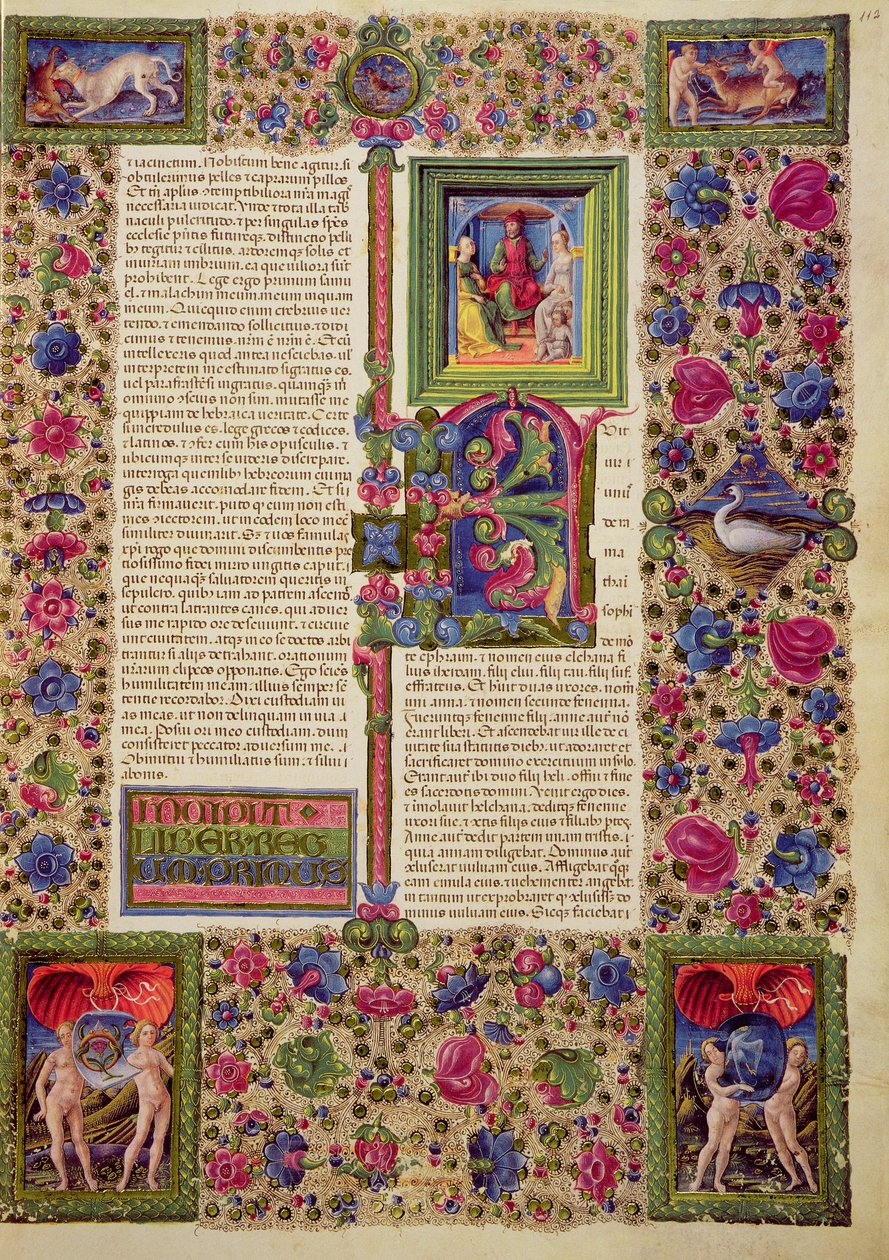 112
et iacinctum. Nobiscum bene agitur si
obtulerimus pelles et caprarum pillos.
necessaria iudicat. Vnde et tota illa tab
naculi pulcritudo, et per singulas sp̄es
ecclesie p̄ntis futureqꝫ distinctio pelib
tegitur et cilitiis, ardoremqꝫ solis et
iniuriam imbrium, ea que uiliora sūt
prohibent. Lege ergo primum samu
el et malachim meum, meum inquam
meum. Quicquid enim crebrius uer
tendo, et emendando sollicitus, et didi
cimus et tenemus, nr̄m ē. Et cū
intellexeris quod antea nesciebas, ul̓
interpretem me estimato si gratus es,
uel parafrastē si ingratus, quamqꝫ m̄
omnino conscius non sim, mutasse me
quippiam de hebraica ueritate. Certe
si incredulus es, lege grecos codices, et
latinos, et confer cum his opusculis, et
ubicumqꝫ inter se uideris discrepare,
interroga quemlibꝫ hebreorum cui ma
gis debeas accomodare fidem. Et si
nr̄a firmauerit, puto qꝫ eum non esti
mes coniectorem, ut in eodem loco mecū
similiter diuinarit. Sꝫ et uos famulas
xp̄i rogo que domini discumbentis p̄c
tiosissimo fidei mirro ungitis caput, et
que nequaqꝫ saluatorem queritis in
sepulcro, quibꝫ iam ad patrem ascendit
ut contra latrantes canes, qui aduer
sus me rapido ore deseuiunt, et circue
unt ciuitatem, atqꝫ in eo se doctos arbi
trantur si aliis detrahant, orationum
urarum clipeos opponatis. Ego sciens
humilitatem meam, illius semper sē
tentie recordabor. Dixi custodiam ui
as meas, ut non delinquam in lingua
mea. Posui ori meo custodiam, dum
consisteret peccator aduersum me.
Obmutui et humiliatus sum, et silui
a bonis.
INCIPIT
LIBER REG
UM PRIMUS
F
Vit
uir i
unꝰ
de ra
ma
thai
sophi
de mō
te ephraim, et nomen eius elchana fi
lius iheroam, filij eliu, filij tau, filij suf,
effrateus. Et habuit duas uxores, nom
uni anna, et nomen secunde fenenna.
Fueruntqꝫ fenenne filij, anne aut̄ nō
erant liberi. Et ascendebat uir ille de ci
uitate sua statutis diebꝫ, ut adoraret et
sacrificaret domino exercituum in sylo.
Erant aut̄ ibi duo filij heli, offni et fine
es sacerdotes domini. Venit ergo dies,
et īmolauit helchana, deditqꝫ fenenne
uxori sue, et cūctis filijs eius et filiabꝫ ptes.
Anne aut̄ dedit partem unam tristis,
quia annam diligebat. Dominus aut̄
concluserat uuluam eius. Affligebat qꝫqꝫ
eam emula eius, et uehementer angebat
in tantum ut exprobraret qꝫ conclusisset do
minus uuluam eius. Sicqꝫ faciebat